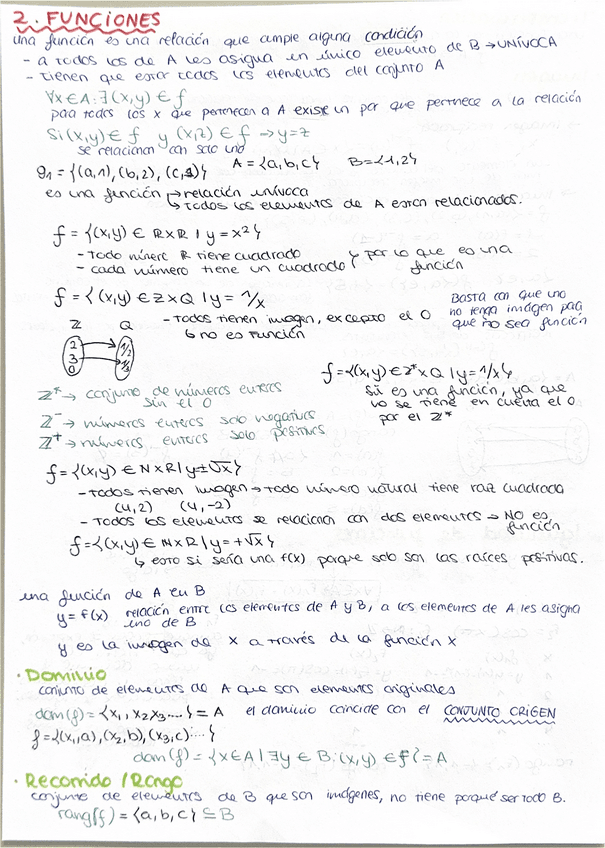 2. FUNCIONES
una función es una relación que cumple alguna condición
- a todos los de A les asigna un único elemento de B → UNÍVOCA
- tienen que estar todos los elementos del conjunto A
∀x ∈ A : ∃ (x,y) ∈ f
para todos los x que pertenecen a A existe un par que pertenece a la relación
Si (x,y) ∈ f y (x,z) ∈ f → y = z
se relacionan con solo uno
g1 = {(a,1), (b,2), (c,1)} A = {a,b,c} B = {1,2}
es una función → relación unívoca
↳ todos los elementos de A están relacionados.
f = {(x,y) ∈ R x R | y = x²}
- todo número R tiene cuadrado
- cada número tiene un cuadrado } por lo que es una función
f = {(x,y) ∈ Z x Q | y = 1/x
- todos tienen imagen, excepto el 0
↳ no es función
Basta con que uno
no tenga imágen para
que no sea función
Z Q
2 1/2
3 1/3
0
f = {(x,y) ∈ Z* x Q | y = 1/x}
Si es una función, ya que
no se tiene en cuenta el 0
por el Z*
Z* → conjunto de números enteros
sin el 0
Z⁻ → números enteros solo negativos
Z⁺ → números enteros solo positivos
f = {(x,y) ∈ N x R | y ± √x}
- todos tienen imagen → todo número natural tiene raíz cuadrada
(4,2) (4,-2)
- todos los elementos se relacionan con dos elementos → NO es
función
f = {(x,y) ∈ N x R | y = +√x}
↳ esto si sería una f(x) porque solo son las raíces positivas.
una función de A en B
y = f(x) relación entre los elementos de A y B, a los elementos de A les asigna
uno de B
y es la imagen de x a través de la función x
· Dominio
conjunto de elementos de A que son elementos originales
dom(f) = {x₁, x₂ x₃ ....} = A el dominio coincide con el CONJUNTO ORIGEN
f = {(x₁,a), (x₂,b), (x₃,c) ...}
dom(f) = {x ∈ A | ∃y ∈ B : (x,y) ∈ f} = A
· Recorrido / Rango
conjunto de elementos de B que son imágenes, no tiene porqué ser todo B.
rang(f) = {a,b,c} ⊆ B